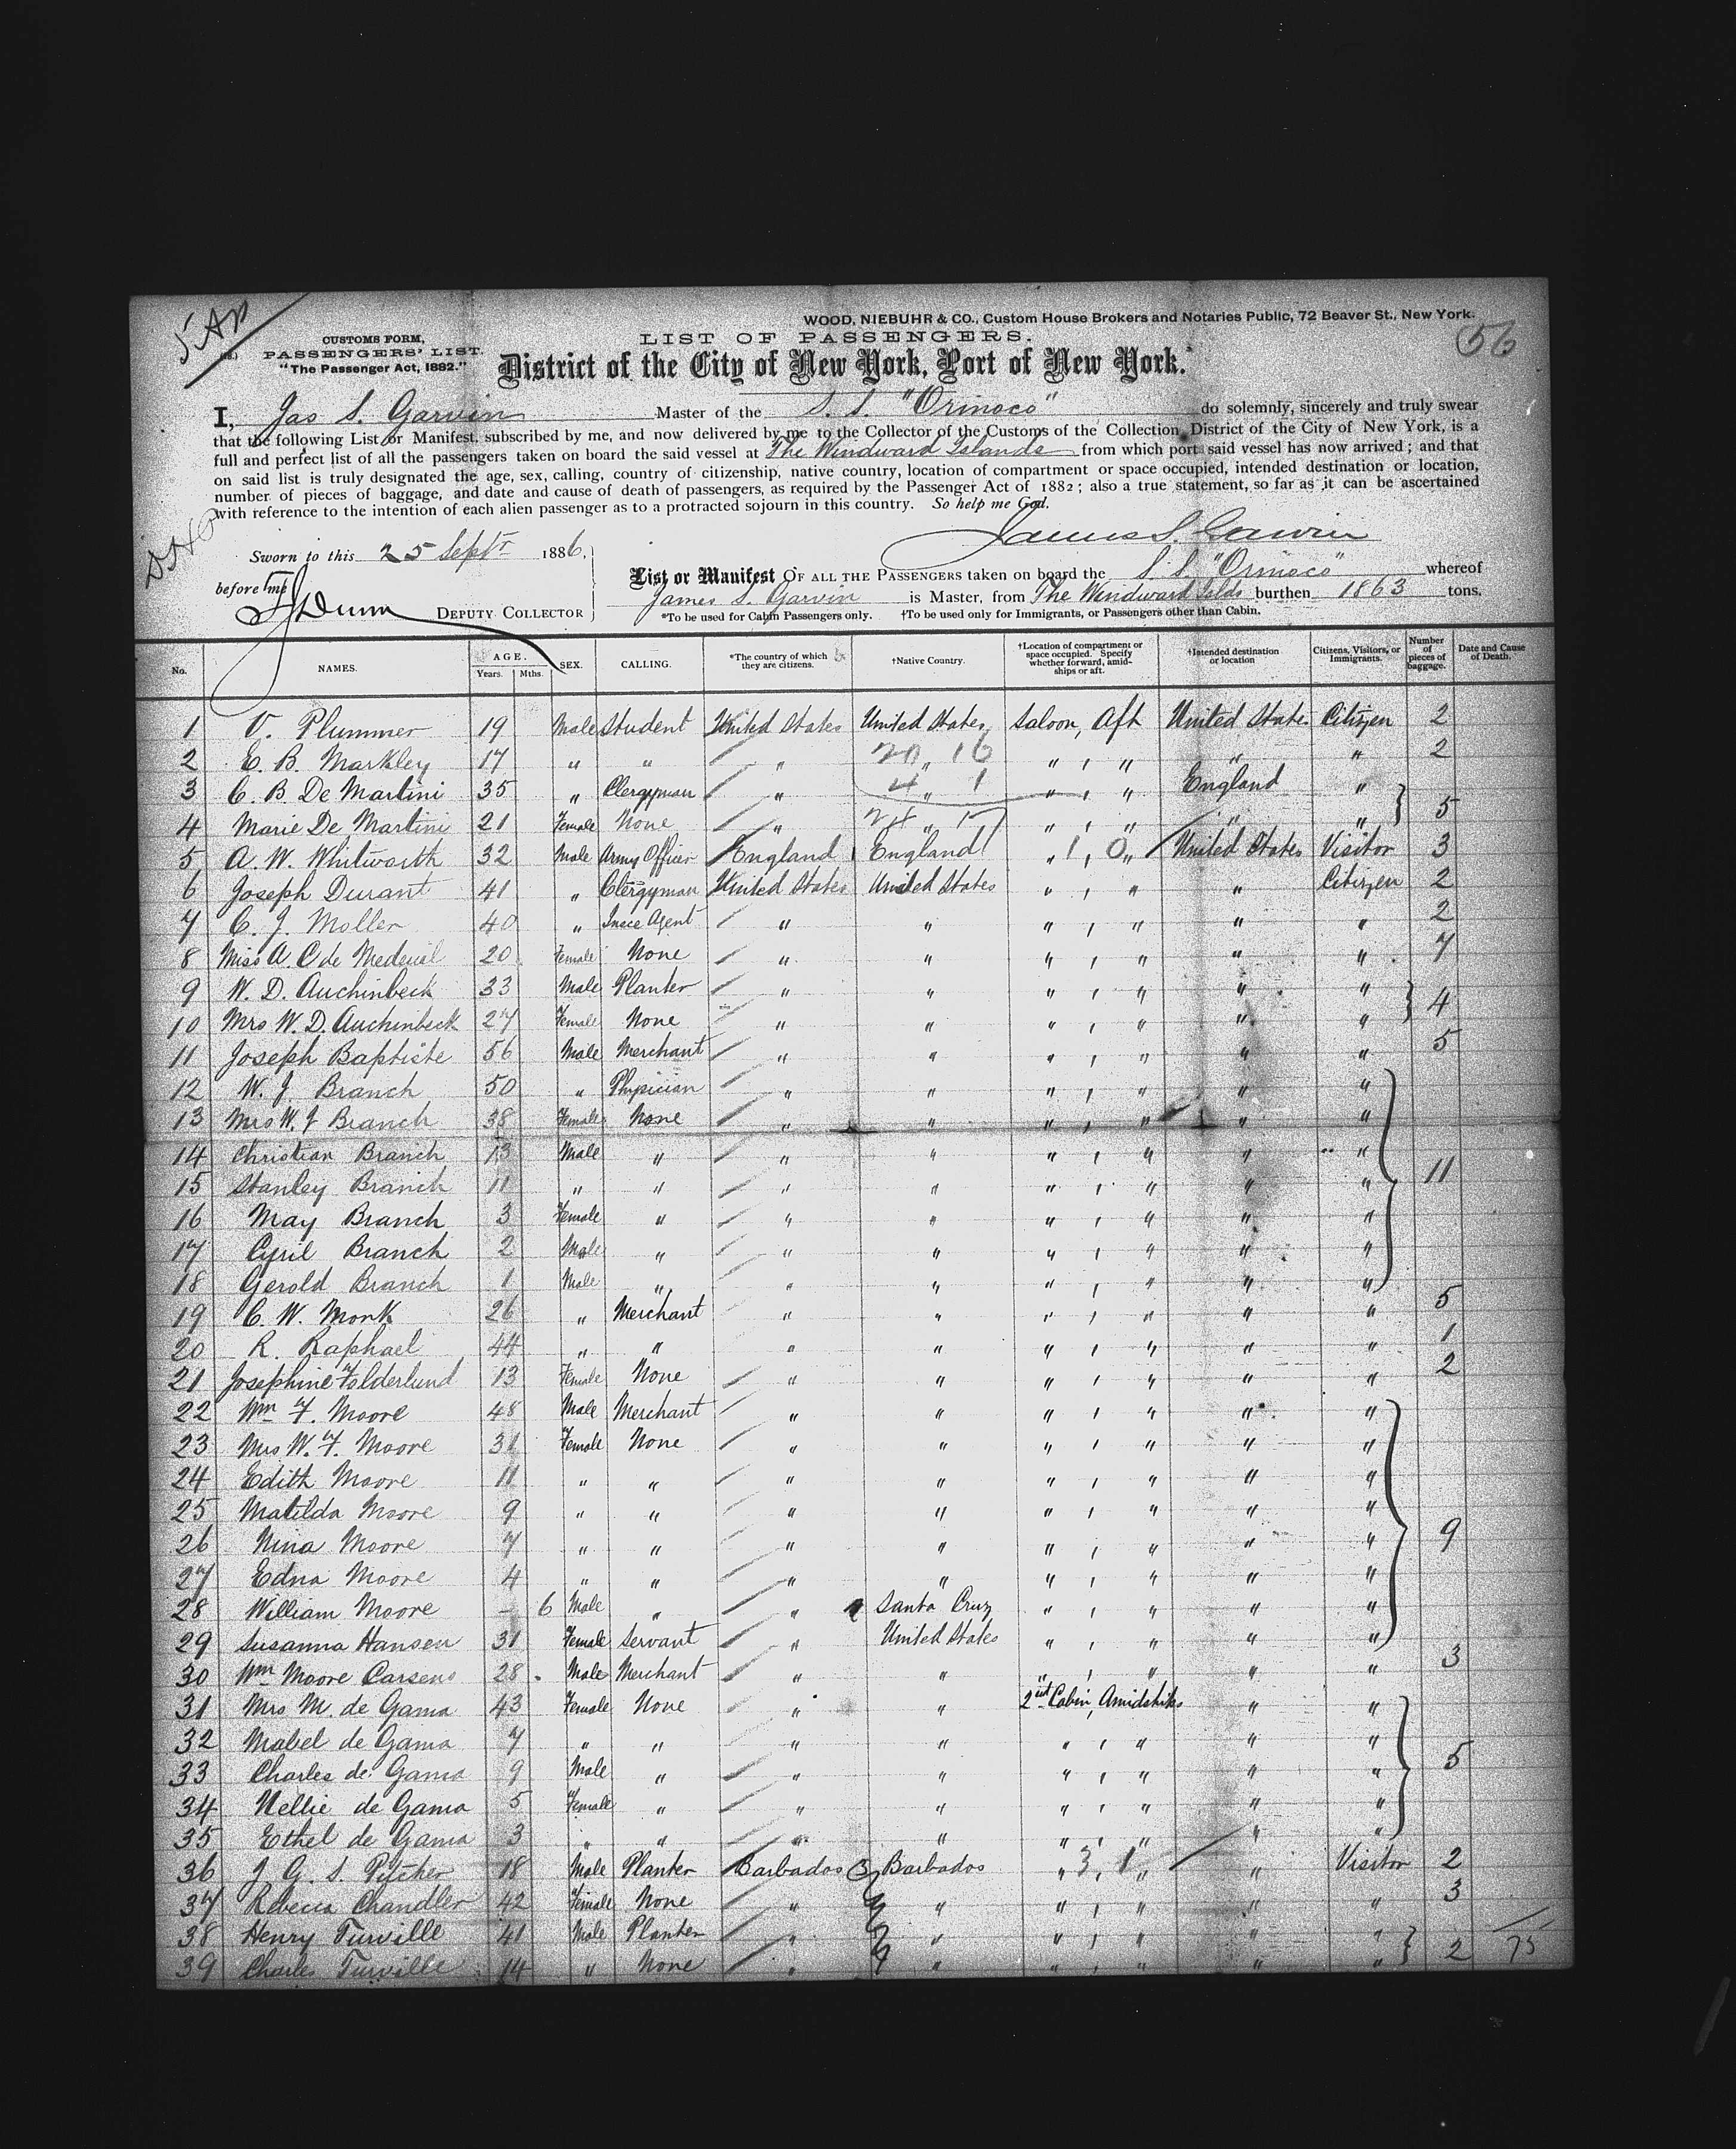 5 AD
WOOD, NIEBUHR & CO., Custom House Brokers and Notaries Public, 72 Beaver St., New York.
56
CUSTOMS FORM,
PASSENGERS' LIST.
"The Passenger Act, 1882."
LIST OF PASSENGERS.
District of the City of New York, Port of New York.
I, Jas S. Garvin Master of the S. S. "Orinoco" do solemnly, sincerely and truly swear
that the following List or Manifest, subscribed by me, and now delivered by me to the Collector of the Customs of the Collection District of the City of New York, is a
full and perfect list of all the passengers taken on board the said vessel at The Windward Islands from which port said vessel has now arrived; and that
on said list is truly designated the age, sex, calling, country of citizenship, native country, location of compartment or space occupied, intended destination or location,
number of pieces of baggage, and date and cause of death of passengers, as required by the Passenger Act of 1882; also a true statement, so far as it can be ascertained
with reference to the intention of each alien passenger as to a protracted sojourn in this country. So help me God.
James S. Garvin
Sworn to this 25 Septr 1886,
before me
Dunn DEPUTY COLLECTOR
List or Manifest OF ALL THE PASSENGERS taken on board the S. S. "Orinoco" whereof
James S. Garvin is Master, from The Windward Islds burthen 1863 tons.
*To be used for Cabin Passengers only. †To be used only for Immigrants, or Passengers other than Cabin.
No. NAMES. AGE. Years. Mths. SEX. CALLING. *The country of which they are citizens. †Native Country. †Location of compartment or space occupied. Specify whether forward, amidships or aft. †Intended destination or location Citizens, Visitors, or Immigrants. Number of pieces of baggage. Date and Cause of Death.
1 V. Plummer 19 Male Student United States United States Saloon, Aft United States Citizen 2
2 E. B. Markley 17 " " " 20 " 16 " , " " " 2
3 C. B. De Martini 35 " Clergyman " 4 " 1 " , " England "
4 Marie De Martini 21 Female None " 24 " 17 " , " " " 5
5 A. W. Whitworth 32 Male Army Officer England England " 1 , 0 " United States Visitor 3
6 Joseph Durant 41 " Clergyman United States United States " , " " Citizen 2
7 C. J. Moller 40 " Insce Agent " " " , " " " 2
8 Miss A. C de Mederial 20 Female None " " " , " " " 7
9 W. D. Auchinbeck 33 Male Planter " " " , " " "
10 Mrs W. D. Auchinbeck 27 Female None " " " , " " " 4
11 Joseph Baptiste 56 Male Merchant " " " , " " " 5
12 W. J. Branch 50 " Physician " " " , " " "
13 Mrs W. J Branch 38 Female None " " " , " " "
14 Christian Branch 13 Male " " " " , " " "
15 Stanley Branch 11 " " " " " , " " " 11
16 May Branch 3 Female " " " " , " " "
17 Cyril Branch 2 Male " " " " , " " "
18 Gerold Branch 1 Male " " " " , " " "
19 C. W. Monk 26 " Merchant " " " , " " " 5
20 R. Raphael 44 " " " " " , " " " 1
21 Josephine Folderlund 13 Female None " " " , " " " 2
22 Wm F. Moore 48 Male Merchant " " " , " " "
23 Mrs W. F. Moore 31 Female None " " " , " " "
24 Edith Moore 11 " " " " " , " " "
25 Matilda Moore 9 " " " " " , " " "
26 Nina Moore 7 " " " " " , " " " 9
27 Edna Moore 4 " " " " " , " " "
28 William Moore - 6 Male " " Santa Cruz " , " " "
29 Susanna Hansen 31 Female Servant " United States " , " " "
30 Wm Moore Carsens 28 Male Merchant " " " , " " " 3
31 Mrs M. de Gama 43 Female None " " 2nd Cabin, Amidships " "
32 Mabel de Gama 7 " " " " " , " " "
33 Charles de Gama 9 Male " " " " , " " " 5
34 Nellie de Gama 5 Female " " " " , " " "
35 Ethel de Gama 3 " " " " " , " " "
36 J. G. S. Pitcher 18 Male Planter Barbados 3 Barbados " 3 , 1 " " Visitor 2
37 Rebecca Chandler 42 Female None " " " , " " " 3
38 Henry Turville 41 Male Planter " " " , " " "
39 Charles Turville 14 " None " " " , " " " 2 75